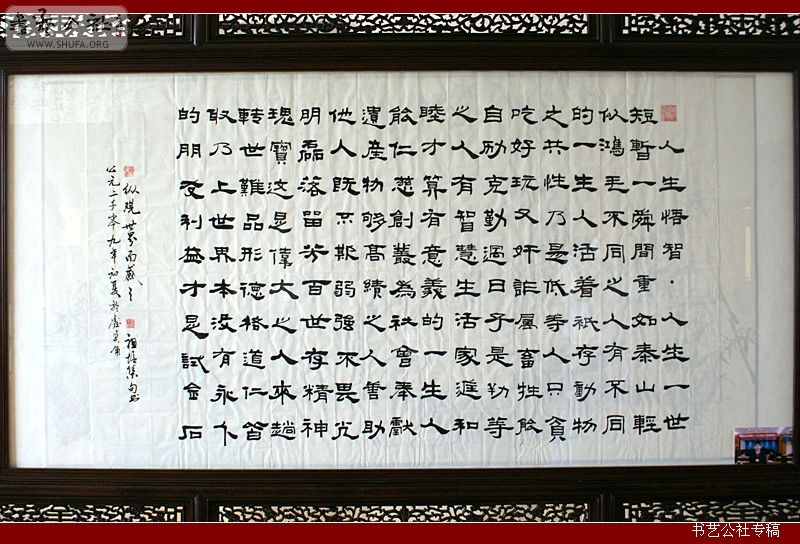 人生悟智·人生一世
短暫一瞬間重如泰山輕
似鴻毛不同之人有不同
的一生人活着衹存動物
之共性乃是低等人只貪
吃好玩又奸詐屬畜牲
自励克勤過日子是勤等
之人有智慧生活家進和
睦才算有意義的一生人
仁慈創叢為社會奉獻
遺産物够高績之人善助
他人既不欺弱強不畏
明磊落留芳百世存精神
瑰寶这是偉大之人來趟
轉世難品形德格道仁皆
取乃上世界本没有永
的朋友利益才是試金石
纵观世界而感之
祖培集句书
公元二千零九年初夏於
书艺公社
WWW.SHUFA.ORG
书艺公社专稿